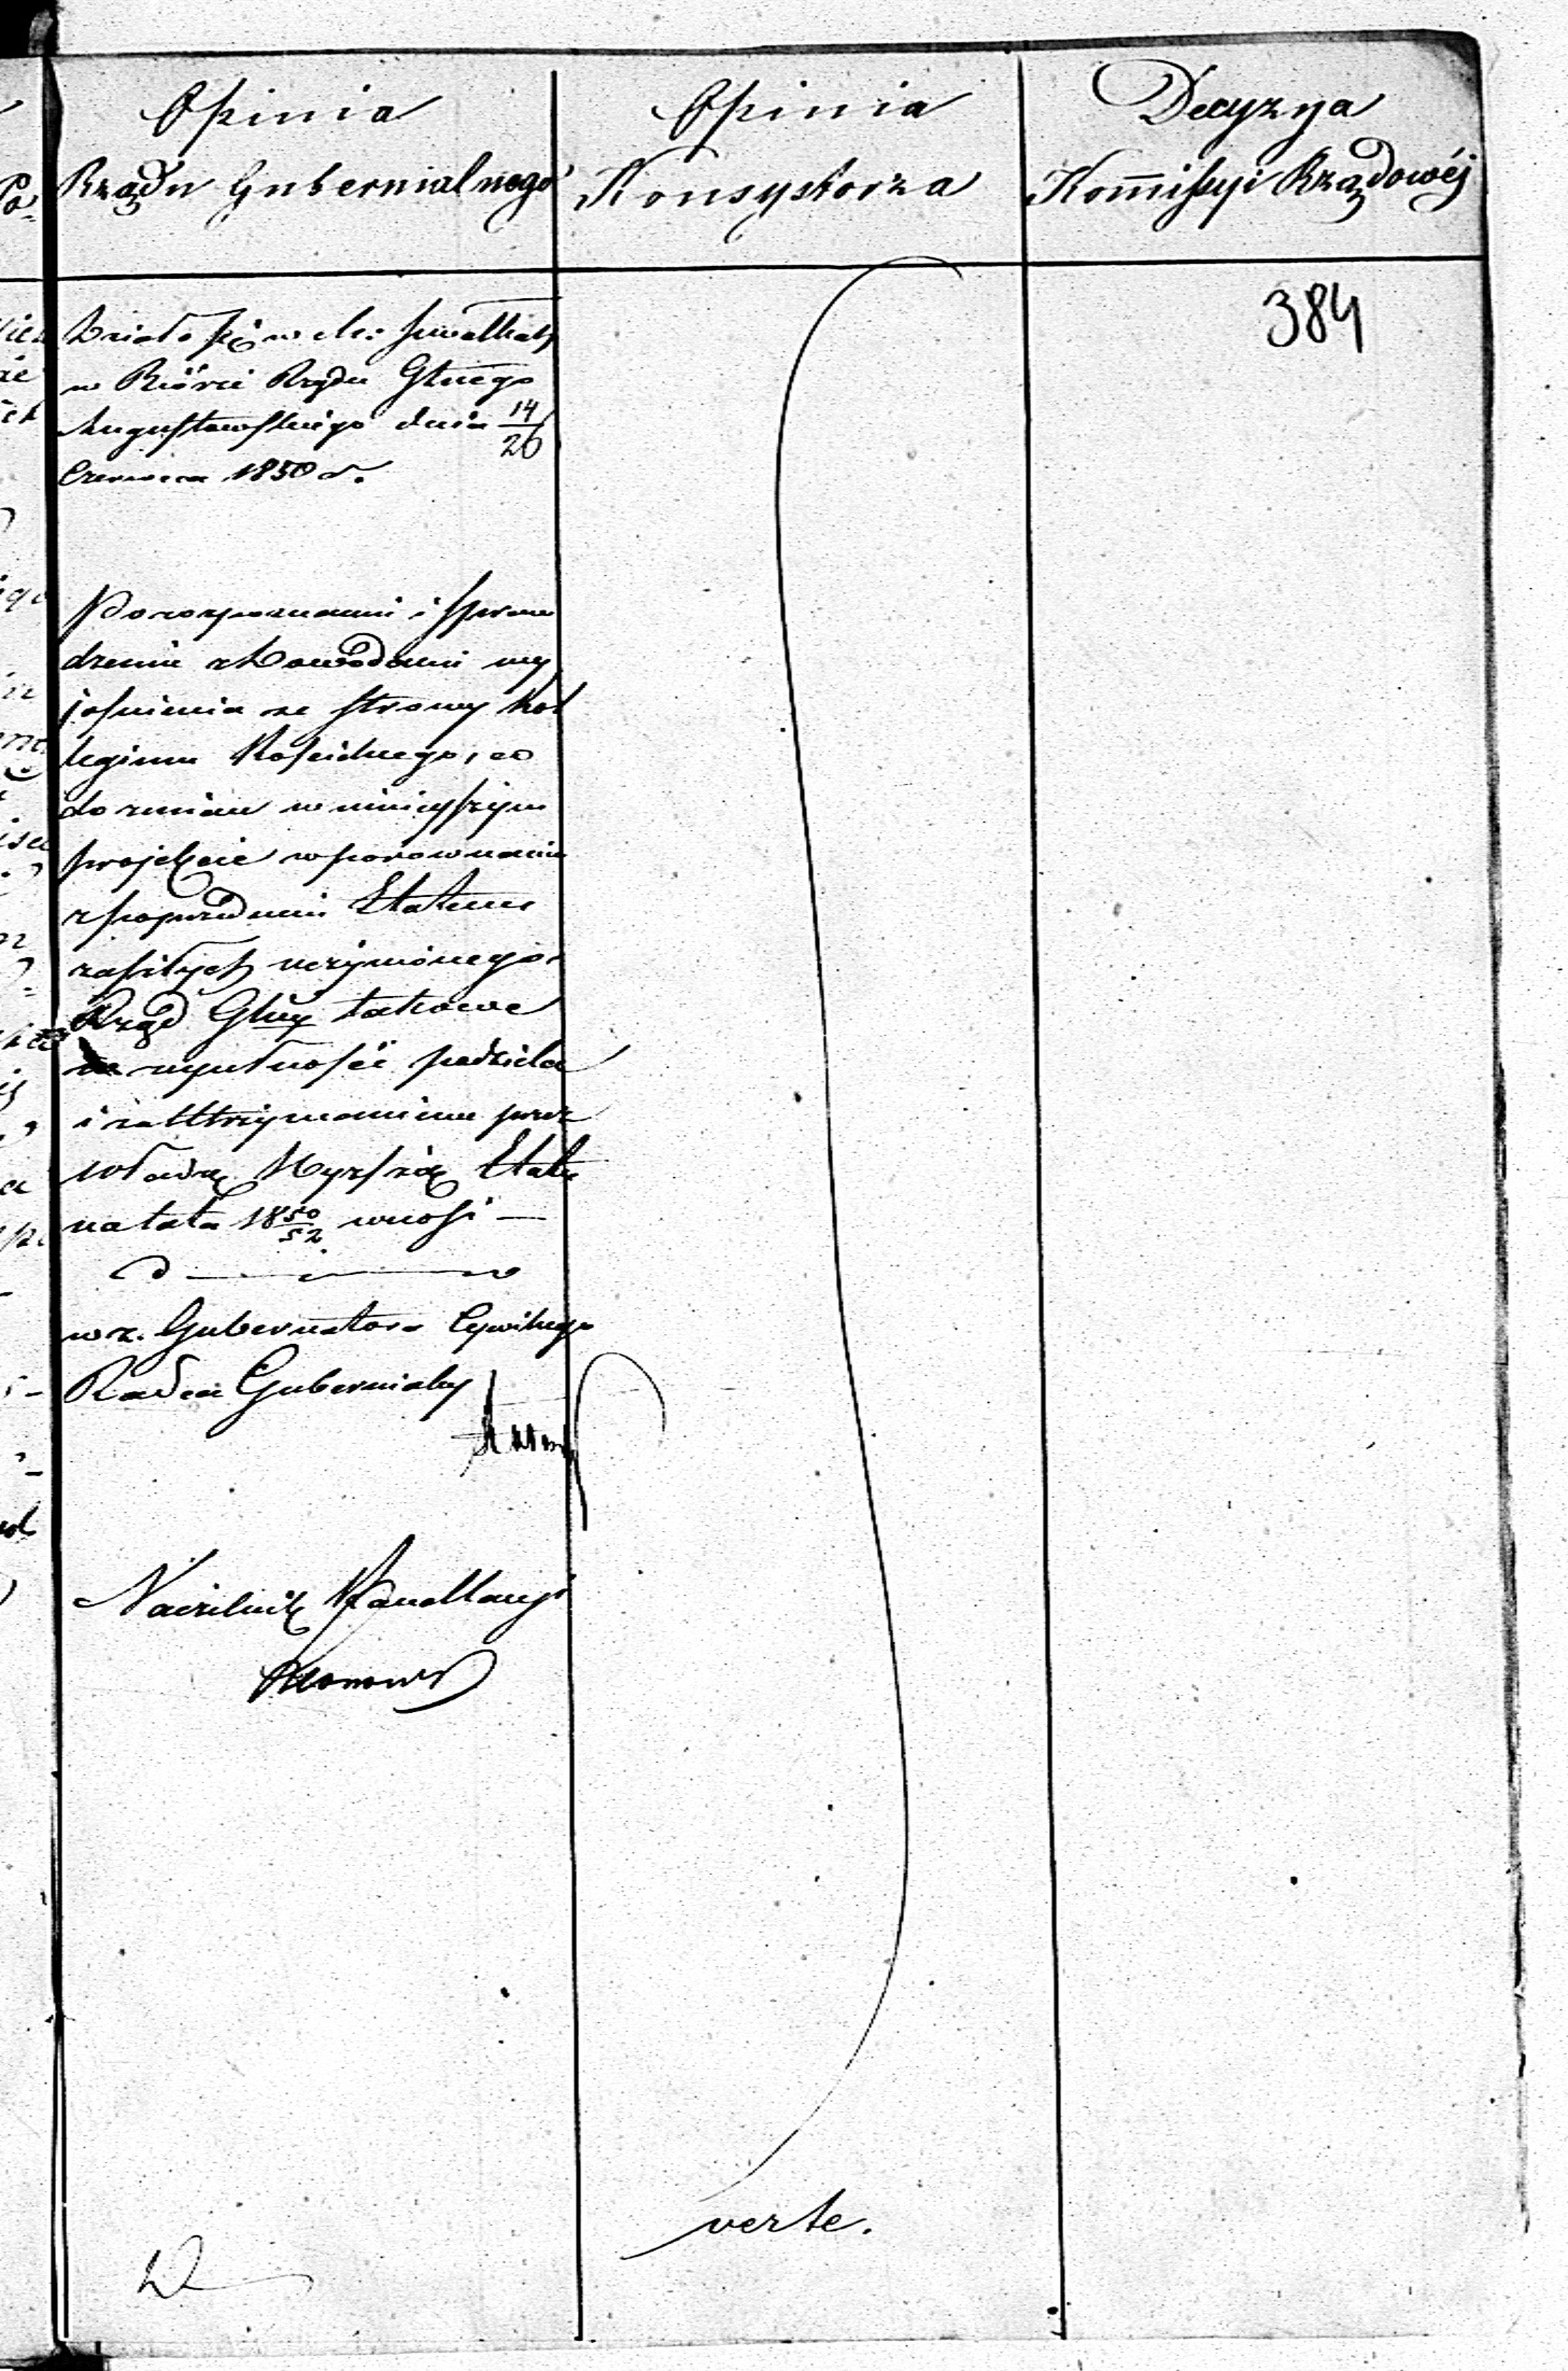 Opinia
Rządu Gubernialnego
Opinia
Konsystorza
Decyzya
Kommissyi Rządowéj
384
Działo się w m: Suwałkach
w Biórze Rządu Głnego
Augustowskiego dnia 14/26
Czerwca 1850 r.
Po rozpoznaniu i spraw
dzeniu z dowodami wy
jaśnienia ze strony Kol
legium Kościelnego, co
do zmian w niniejszym
projekcie w porównaniu
z poprzednim Etatem
zaszłych uczynionego
Rząd Głny takowe
w zupełności podziela
i za utrzymaniem przez
Władzę Wyższą Etatu
na lata 1850/52 wnosi —
wz. Gubernatora Cywilnego
Radca Gubernialny
Naczelnik Kancellaryi
verte.